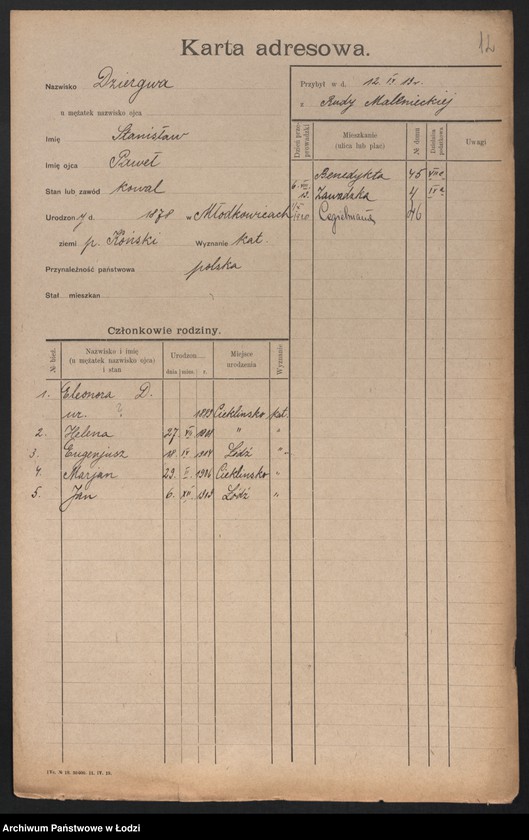 12
Karta adresowa.
Nazwisko Dziergwa
u mężatek nazwisko ojca
Imię Stanisław
Imię ojca Paweł
Stan lub zawód kowal
Urodzon y d. 1878 w Młodkowicach
ziemi p. Koński Wyznanie kat.
Przynależność państwowa polska
Stał. mieszkan.
Przybył w d. 12 IV 19 r.
z Rudy Malenieckiej
Dzień przeprowadzki Mieszkanie (ulica lub plac) № domu Dzielnica podatkowa Uwagi
Benedykta 45 VIII
6. 19. Zawadzka 4 IV a
1920 46
Członkowie rodziny.
№ bież. Nazwisko i imię (u mężatek nazwisko ojca) i stan Urodzon Miejsce urodzenia Wyznanie
dnia mies. r.
1. Eleonora D.
ur. ? Cieklinsko kat.
2. Helena 27. VII "  "
3. Eugenjusz 18. IV Łódź "
4. Marjan 29. II. 1906 Cieklinsko "
5. Jan 6. XII. 1913 Łódź "
Archiwum Państwowe w Łodzi